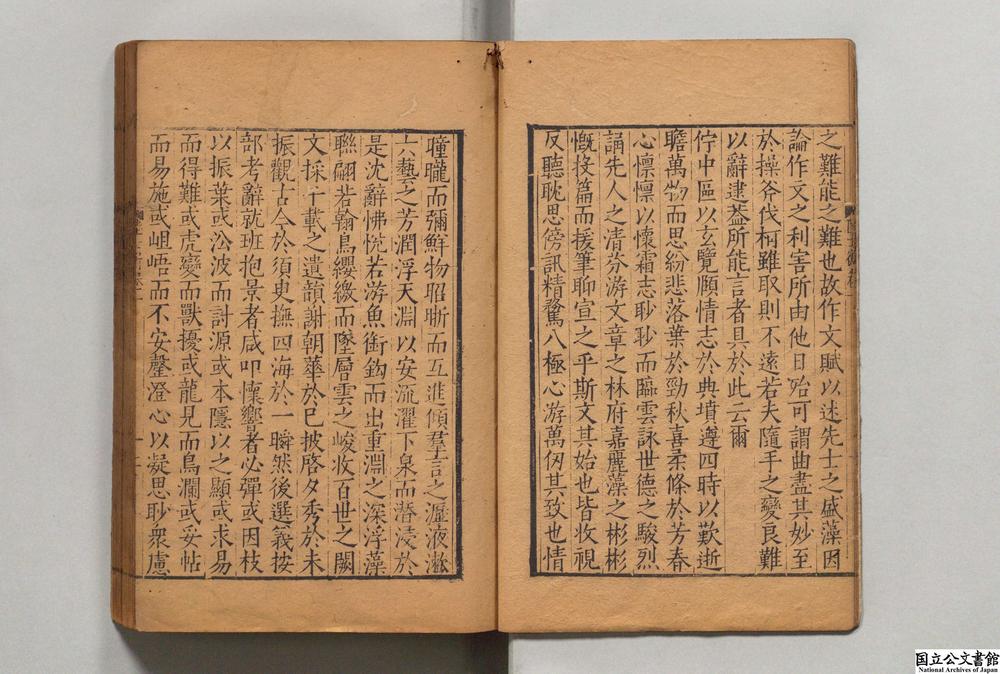 之難能之難也故作文賦以述先士之盛藻因
論作文之利害所由他日殆可謂曲盡其妙至
於操斧伐柯雖取則不遠若夫隨手之變良難
以辭逮葢所能言者具於此云爾
佇中區以玄覽頤情志於典墳遵四時以歎逝
瞻萬物而思紛悲落葉於勁秋喜柔條於芳春
心懍懍以懷霜志眇眇而臨雲詠世德之駿烈
誦先人之清芬游文章之林府嘉麗藻之彬彬
慨投篇而援筆聊宣之乎斯文其始也皆收視
反聽耽思傍訊精騖八極心游萬仞其致也情
曈曨而彌鮮物昭晰而互進傾羣言之瀝液漱
六藝之芳潤浮天淵以安流濯下泉而潛浸於
是沈辭怫悅若游魚銜鈎而出重淵之深浮藻
聯翩若翰鳥纓繳而墜層雲之峻收百世之闕
文採千載之遺韻謝朝華於已披啓夕秀於未
振觀古今於須臾撫四海於一瞬然後選義按
部考辭就班抱景者咸叩懷響者必彈或因枝
以振葉或沿波而討源或本隱以之顯或求易
而得難或虎變而獸擾或龍見而鳥瀾或妥帖
而易施或岨峿而不安罄澄心以凝思眇衆慮
國立公文書館
National Archives of Japan